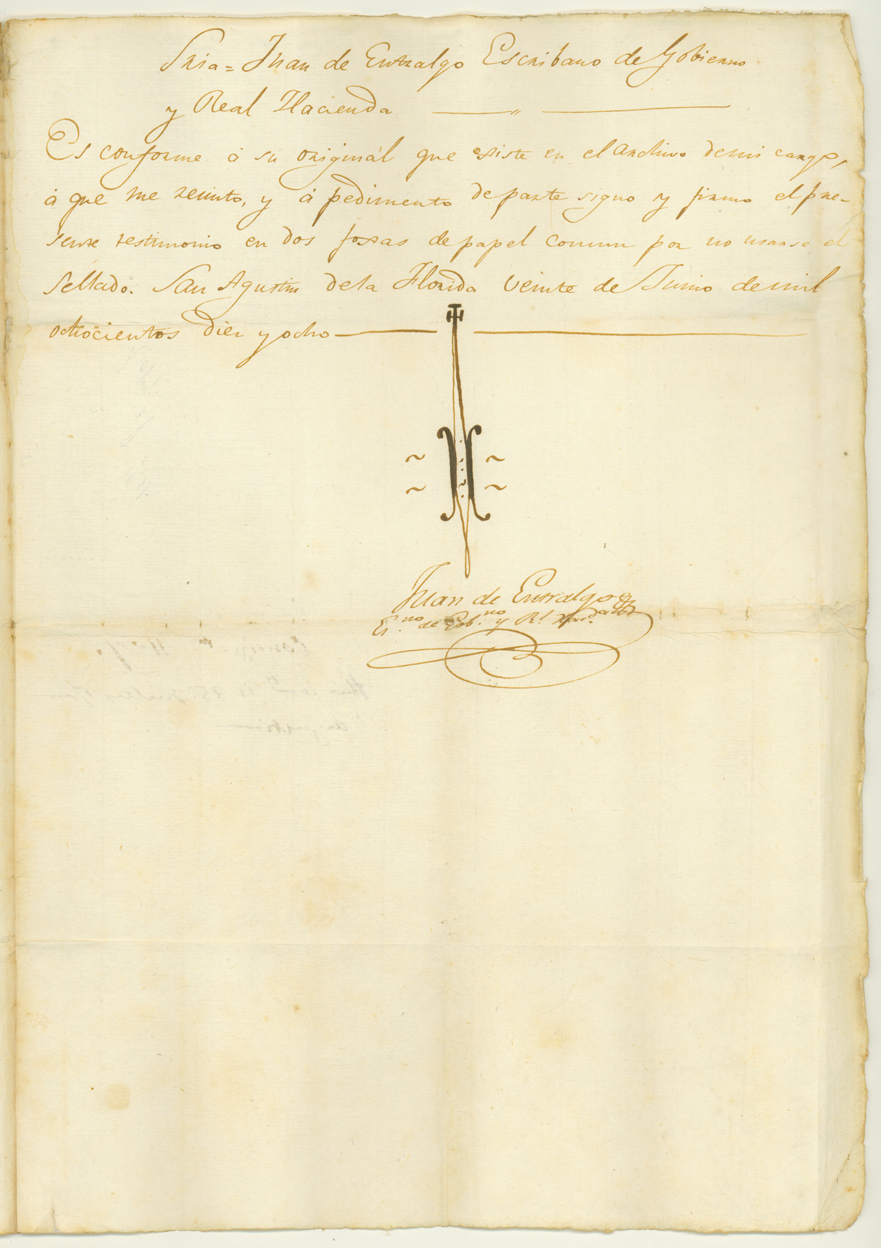 Sria = Juan de Entralgo Escribano de Gobierno
y Real Hacienda
Es conforme á su originál que existe en el archivo de mi cargo,
á que me remito, y á pedimento de parte signo y firmo el pre-
sente testimonio en dos foxas de papel comun por no usarse el
Sellado. San Agustin de la Florida veinte de Junio de mil
ochocientos diez y ocho
Juan de Entralgo
Es.no de Gob.no y Rl Haz.da